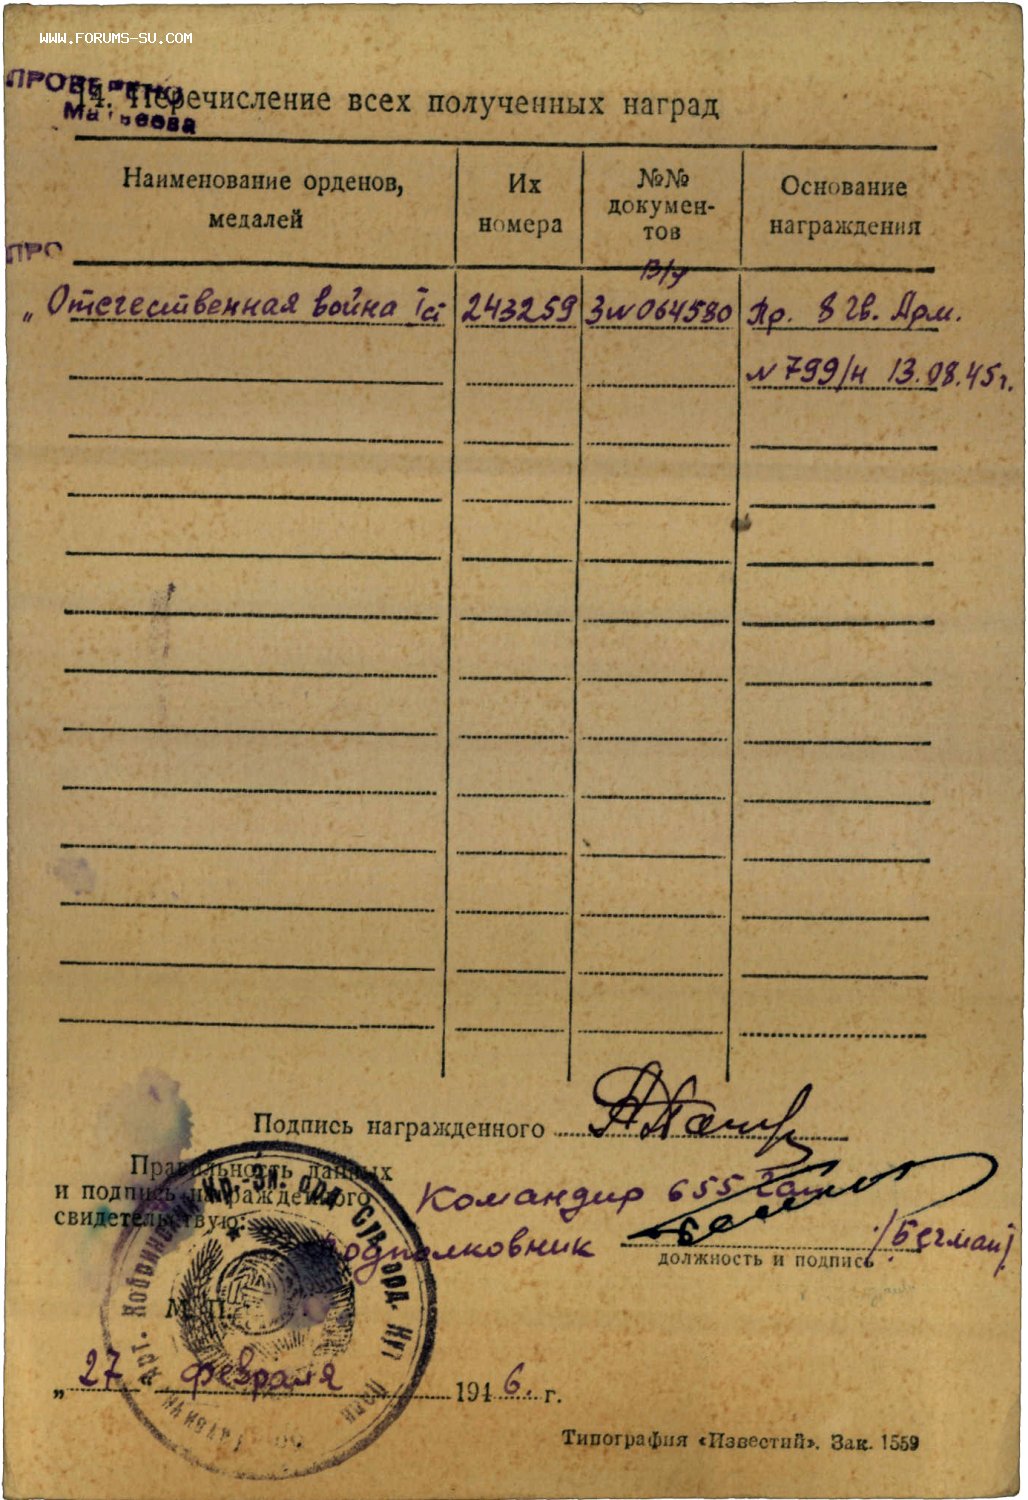 WWW.FORUMS-SU.COM
ПРОВЕРЕНО
Матвеева
14. Перечисление всех полученных наград
Наименование орденов, медалей
Их номера
№№ документов
Основание награждения
ПРО
В/у
„Отечественная война Iст 243259 З№064580 Пр. 8 гв. Арм.
№799/н 13.08.45г.
Подпись награжденного
Правильность данных
и подпись награжденного
свидетельствую:
Командир 655
Подполковник
должность и подпись
М. П.
Арт. Кобринский Кр.-Зн. орд. Сувор. орд. Кут
„27 февраля 1946. г.
Типография «Известий». Зак. 1559